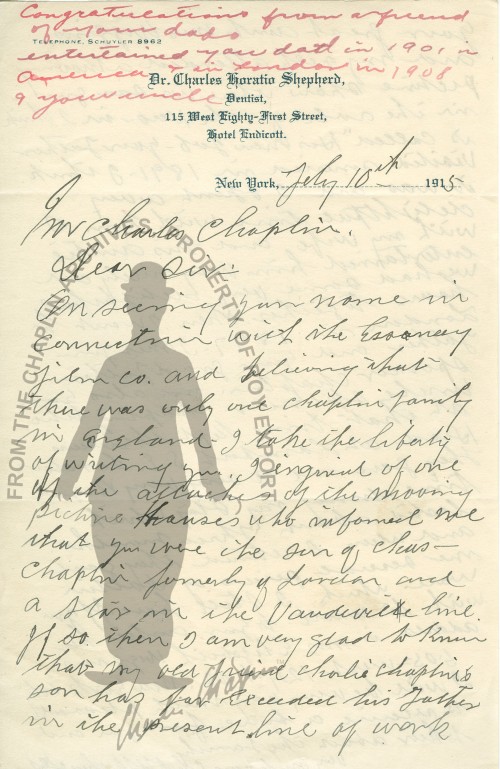 Congratulations from a friend
of your dads
TELEPHONE, SCHUYLER 8962
entertained your dad in 1901 in
America & in London in 1908
& your uncle
Dr. Charles Horatio Shepherd,
Dentist,
115 West Eighty-First Street,
Hotel Endicott.
New York, Feby 10th 1915
Mr Charles Chaplin.
Dear Sir
On seeing your name in
connection with the Essaney
Film co. and believing that
there was only one chaplin family
in England I take the liberty
of writing you. I enquired of one
of the attaches of the moving
picture houses who informed me
that you were the son of Chas
Chaplin formerly of London and
a star in the Vaudeville line.
If so then I am very glad to know
that my old friend Charlie Chaplin's
son has far exceeded his Father
in the present line of work
FROM THE CHAPLIN ARCHIVES PROPERTY OF ROY EXPORT
Charlie Chaplin